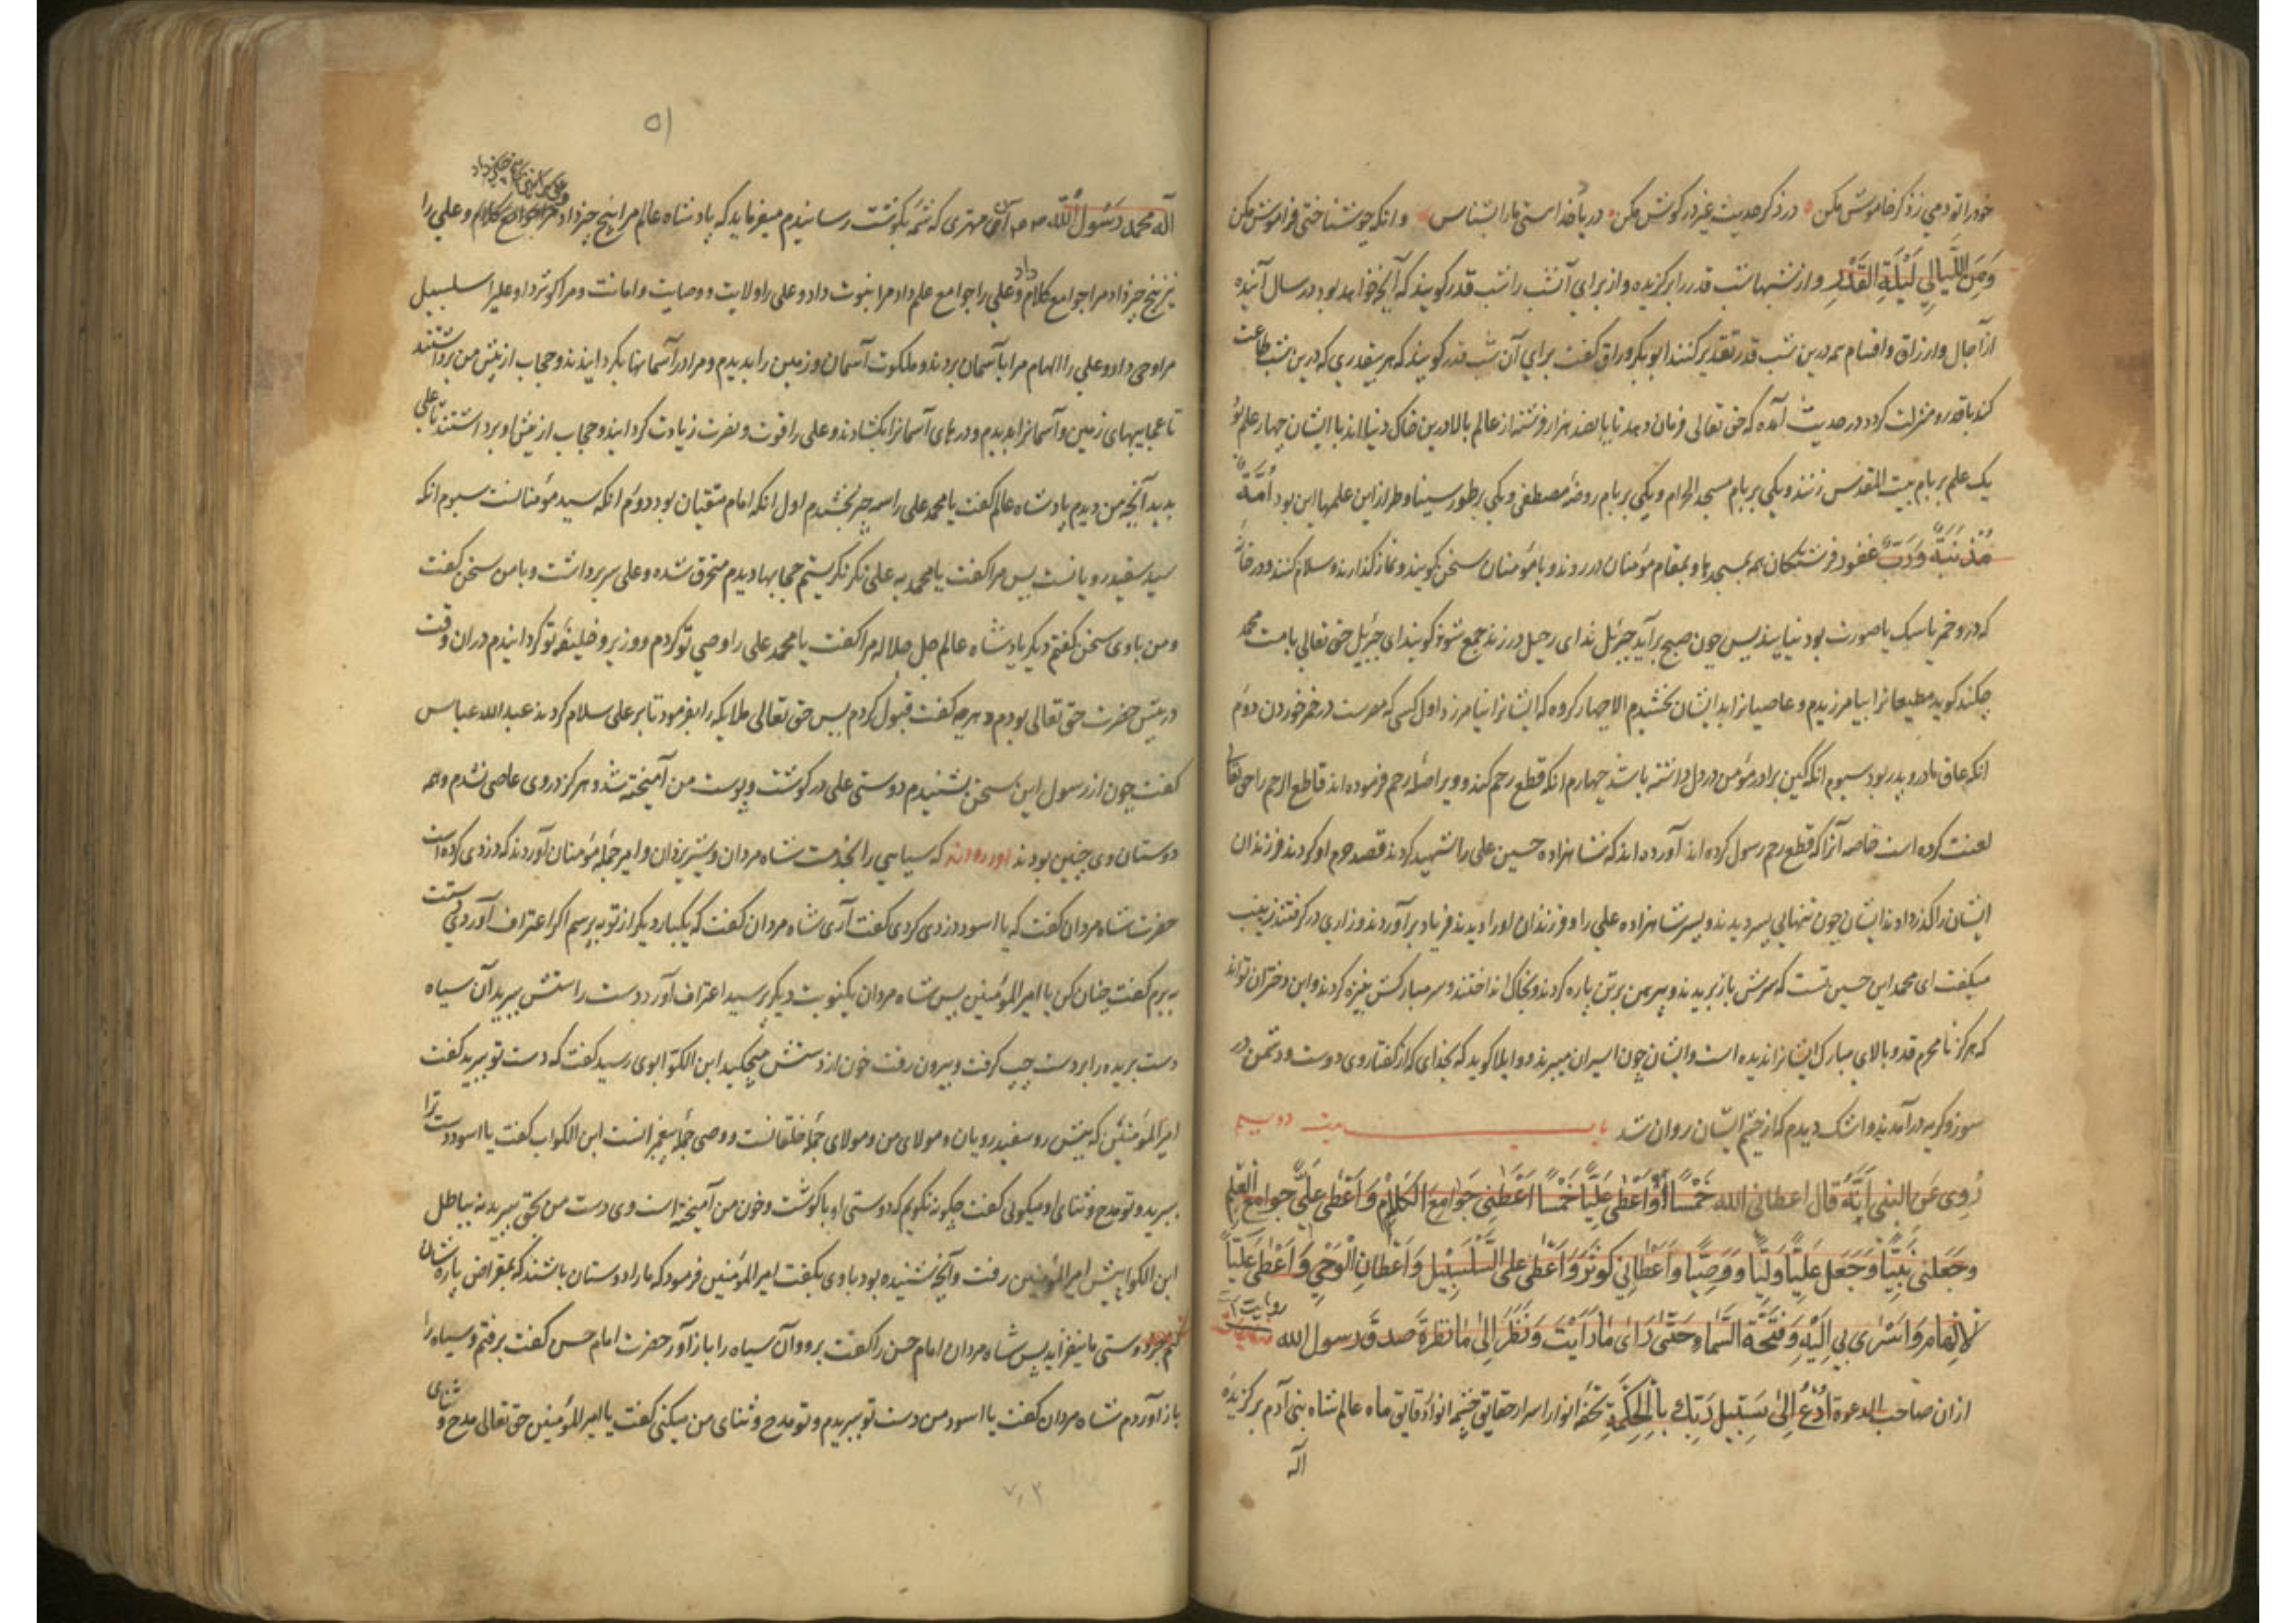 خود را تو دمی ز ذکر خاموش مکن در ذکر حدیث غیر در گوش مکن در یاد خدا استی ما را بشناس وانکه چو شناختی فراموش مکن
وَمِنَ اللَّيَالِي لَيْلَةِ الْقَدْرِ و از شبها شب قدر را برگزیده و از برای آن شب را شب قدر گویند که آنچه خواهد بود در سال آینده
از آجال و ارزاق و اقسام همه درین شب قدر تقدیر کنند ابوبکر وراق گفت برای آن شب قدر گویند که هر بیقدری که درین شب طاعت
کند با قدر و منزلت گردد در حدیث آمده که حق تعالی فرمان دهد تا پانصد هزار فرشته از عالم بالا درین خاک دنیا آیند با ایشان چهار علم بود
یک علم بر بام بیت المقدس زنند و یکی بر بام مسجد الحرام و یکی بر بام روضه مصطفی و یکی بر طور سینا و طراز این علمها این بود اُمَّةٌ
مُذْنِبَةٌ وَرَبٌّ غفور فرشتگان همه بمسجدها و بمقام مؤمنان در روند و با مؤمنان سخن گویند و نماز گذارند و سلام کنند و در خانه
که درو خمر یا سگ یا صورت بود نیایند پس چون صبح برآید جبرئیل ندای رحیل در زند جمع شوند گویند ای جبرئیل حق تعالی با امت محمد
چکند گوید مطیعانرا بیامرزیدم و عاصیانرا بدیشان بخشیدم الا چهار گروه که ایشانرا نیامرزد اول کسی که مصرست در خمر خوردن دوم
انکه عاق مادر و پدر بود سیوم انکه کین برادر مؤمن در دل داشته باشد چهارم انکه قطع رحم کند و ویرا صله رحم فرموده اند قاطع الرحم را حق تعالی
لعنت کرده است خاصه آنرا که قطع رحم رسول کرده اند آورده اند که شاهزاده حسین علی را شهید کردند قصد حرم او کردند فرزندان
ایشان را گذر دادند ایشان چون تنهایی پسر دیدند و پسر شاهزاده علی را و فرزندان او را دیدند فریاد برآوردند و زاری درگرفتند زینب
میگفت ای محمد این حسین تست که سرش باز بریدند و پیرهن بر تن پاره کردند و بخاک انداختند و سر مبارکش بنیزه کردند و این دختران تواند
که هرگز نامحرم قد و بالای مبارک ایشانرا ندیده است و ایشان چون اسیران میبرند و واویلا گوید که بخدای که از گفتار وی دوست و دشمن در
سوز و گریه درآمدند و اشک دیدم که از چشم ایشان روان شد باب بیست دوییم
رُوِی عَن النبی اَنَّهُ قال اعطانی الله خَمْسًا وَاَعْطٰی عَلِیًّا خَمْسًا اَعْطَنِی جَوَامِعَ الْکَلَامِ وَاَعْطٰی عَلِیٌّ جوامع العِلْم
وَجَعَلنی نَبِیًّا وَجَعَل عَلِیًّا وَلِیًّا وَوَصِیًّا وَاَعْطَانِی کَوْثَرَ وَاَعْطٰی علی السَّلْسَبِیْل وَاَعْطَانِ الْوَحْیَ وَاَعْطٰی عَلِیًّا
لْاِلْهَامِ وَاَسْرٰی بِی اِلَیْهِ وَفَتَحَهُ السَّمَاءِ حَتّٰی رَاٰی مٰا رَاَیْتَ وَنَظَرَ اِلیٰ مٰا نَظَرَةَ صدق رسول الله روایت
از ان صاحب الدعوة اُدْعُ اِلٰی سَبِیْلِ رَبِّكَ بِالْحِکْمَةِ تحفه انوار اسرار حقایق چشم انوار دقایق ماه عالم شاه بنی آدم برگزیده
اله
۵۱
آله محمد رَسُولُ اللّٰه ص م آن مهتری که شمّه بگوشت رسانیدم میفرماید که پادشاه عالم مرا پنج چیز داد و علی را
نیز پنج چیز داد مرا جوامع کلام داد و علی را جوامع علم داد مرا نبوت داد و علی را ولایت و وصایت و امانت و مرا کوثر داد و علیرا سلسبیل
مرا وحی داد و علی را الهام مرا بآسمان بردند و ملکوت آسمان و زمین را بدیدم و مرا در آسمانها بگردانیدند و حجاب از پیش من برداشتند
تا عجایبهای زمین و آسمانرا بدیدم و درهای آسمانرا بگشادند و علی را قوت و نصرت زیادت گردانید و حجاب از پیش او برداشتند تا علی
بدید آنچه من دیدم پادشاه عالم گفت یا محمد علی را سه چیز بخشیدم اول انکه امام متقیان بود دوم انکه سید مؤمنانست سیوم انکه
سید سفید رویانست پس مرا گفت یا محمد به علی نگر نگریستم حجابها دیدم منخرق شده و علی سر برداشت و با من سخن گفت
و من با وی سخن گفتم دیگر پادشاه عالم جل جلاله مرا گفت یا محمد علی را وصی تو کردم و وزیر و خلیفه تو گردانیدم در ان وقت
در پیش حضرت حق تعالی بودم و هرچه گفت قبول کردم پس حق تعالی ملایکه را بفرمود تا بر علی سلام کردند عبد الله عباس
گفت چون از رسول این سخن بشنیدم دوستی علی در گوشت و پوست من آمیخته شد و هرگز در وی عاصی نشدم و همه
دوستان وی چنین بودند آورده اند که سیاهی را بخدمت شاه مردان و شیر یزدان و امیر جمله مؤمنان آوردند که دزدی کرده است
حضرت شاه مردان گفت که یا اسود دزدی کردی گفت آری شاه مردان گفت که یکبار دیگر از تو بپرسم اگر اعتراف آوردی دستت
ببرم گفت چنان کن یا امیر المؤمنین پس شاه مردان یکنوبت دیگر پرسید اعتراف آورد دست راستش ببرید آن سیاه
دست بریده را بر دست چپ گرفت و بیرون رفت خون از دستش میچکید ابن الکوا بوی رسید گفت که دست تو ببرید گفت
امیر المؤمنین که پیش رو سفید رویان و مولای من و مولای جمله خلقانست و وصی جمله پیغمبرانست ابن الکوا گفت یا اسود دست ترا
ببرید و تو مدح و ثنای او میگوئی گفت چگونه نگویم که دوستی او با گوشت و خون من آمیخته است وی دست من بحق ببرید نه بباطل
ابن الکوا پیش امیر المؤمنین رفت و آنچه شنیده بود با وی بگفت امیر المؤمنین فرمود که ما را دوستان باشند که بمقراض پاره شان
کنم جز دوستی ما نیفزاید پس شاه مردان امام حسن را گفت برو و آن سیاه را باز آور حضرت امام حسن گفت برفتم و سیاه را
باز آوردم شاه مردان گفت یا اسود من دست تو ببریدم و تو مدح و ثنای من میکنی گفت یا امیر المؤمنین حق تعالی مدح و ثنای